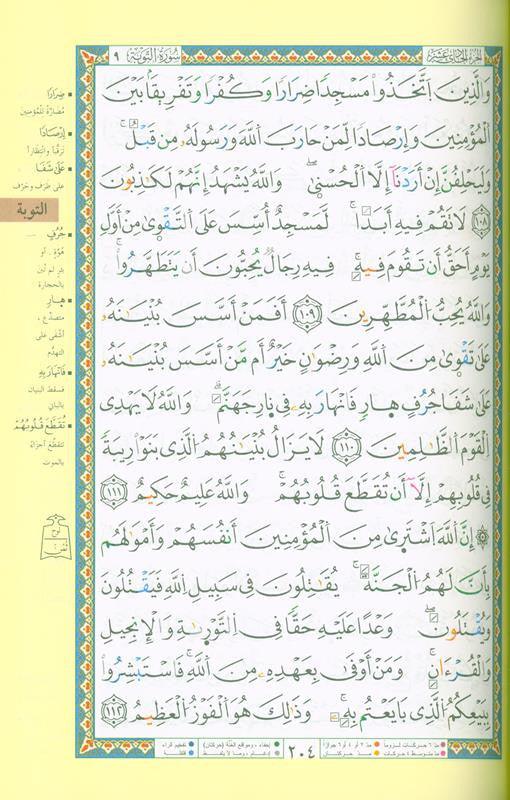 الجزء الحادي عشر
سورة التوبة ٩
وَالَّذِينَ اتَّخَذُوا مَسْجِدًا ضِرَارًا وَكُفْرًا وَتَفْرِيقًا بَيْنَ
الْمُؤْمِنِينَ وَإِرْصَادًا لِمَنْ حَارَبَ اللَّهَ وَرَسُولَهُ مِن قَبْلُ
وَلَيَحْلِفُنَّ إِنْ أَرَدْنَا إِلَّا الْحُسْنَىٰ وَاللَّهُ يَشْهَدُ إِنَّهُمْ لَكَاذِبُونَ
١٠٨ لَا تَقُمْ فِيهِ أَبَدًا لَّمَسْجِدٌ أُسِّسَ عَلَى التَّقْوَىٰ مِنْ أَوَّلِ
يَوْمٍ أَحَقُّ أَن تَقُومَ فِيهِ فِيهِ رِجَالٌ يُحِبُّونَ أَن يَتَطَهَّرُوا
وَاللَّهُ يُحِبُّ الْمُطَّهِّرِينَ ١٠٩ أَفَمَنْ أَسَّسَ بُنْيَانَهُ
عَلَىٰ تَقْوَىٰ مِنَ اللَّهِ وَرِضْوَانٍ خَيْرٌ أَم مَّنْ أَسَّسَ بُنْيَانَهُ
عَلَىٰ شَفَا جُرُفٍ هَارٍ فَانْهَارَ بِهِ فِي نَارِ جَهَنَّمَ وَاللَّهُ لَا يَهْدِي
الْقَوْمَ الظَّالِمِينَ ١١٠ لَا يَزَالُ بُنْيَانُهُمُ الَّذِي بَنَوْا رِيبَةً
فِي قُلُوبِهِمْ إِلَّا أَن تُقَطَّعَ قُلُوبُهُمْ وَاللَّهُ عَلِيمٌ حَكِيمٌ ١١١
۞ إِنَّ اللَّهَ اشْتَرَىٰ مِنَ الْمُؤْمِنِينَ أَنفُسَهُمْ وَأَمْوَالَهُم
بِأَنَّ لَهُمُ الْجَنَّةَ يُقَاتِلُونَ فِي سَبِيلِ اللَّهِ فَيَقْتُلُونَ
وَيُقْتَلُونَ وَعْدًا عَلَيْهِ حَقًّا فِي التَّوْرَاةِ وَالْإِنجِيلِ
وَالْقُرْءَانِ وَمَنْ أَوْفَىٰ بِعَهْدِهِ مِنَ اللَّهِ فَاسْتَبْشِرُوا
بِبَيْعِكُمُ الَّذِي بَايَعْتُم بِهِ وَذَٰلِكَ هُوَ الْفَوْزُ الْعَظِيمُ ١١٢
٢٠٤
ضِرَارًا
مُضارّة للمؤمنين
إِرْصَادًا
ترقّباً وانتظاراً
عَلَىٰ شَفَا
على طرف وحرف
التوبة
جُرُفٍ
هُوّة . أو
بئر لم تُبْنَ
بالحجارة
هَارٍ
متصدّع ،
أشفى على
التهدّم
فَانْهَارَ بِهِ
فسقط البنيان
بالباني
تُقَطَّعَ قُلُوبُهُمْ
تتقطّع أجزاءً
بالموت
مدّ ٦ حركات لزوماً
مدّ ٢ أو ٤ أو ٦ جوازاً
مدّ حركتان
إخفاء، ومواقع الغُنَّة (حركتان)
إدغام، وما لا يُلفظ
تفخيم الراء
قلقلة